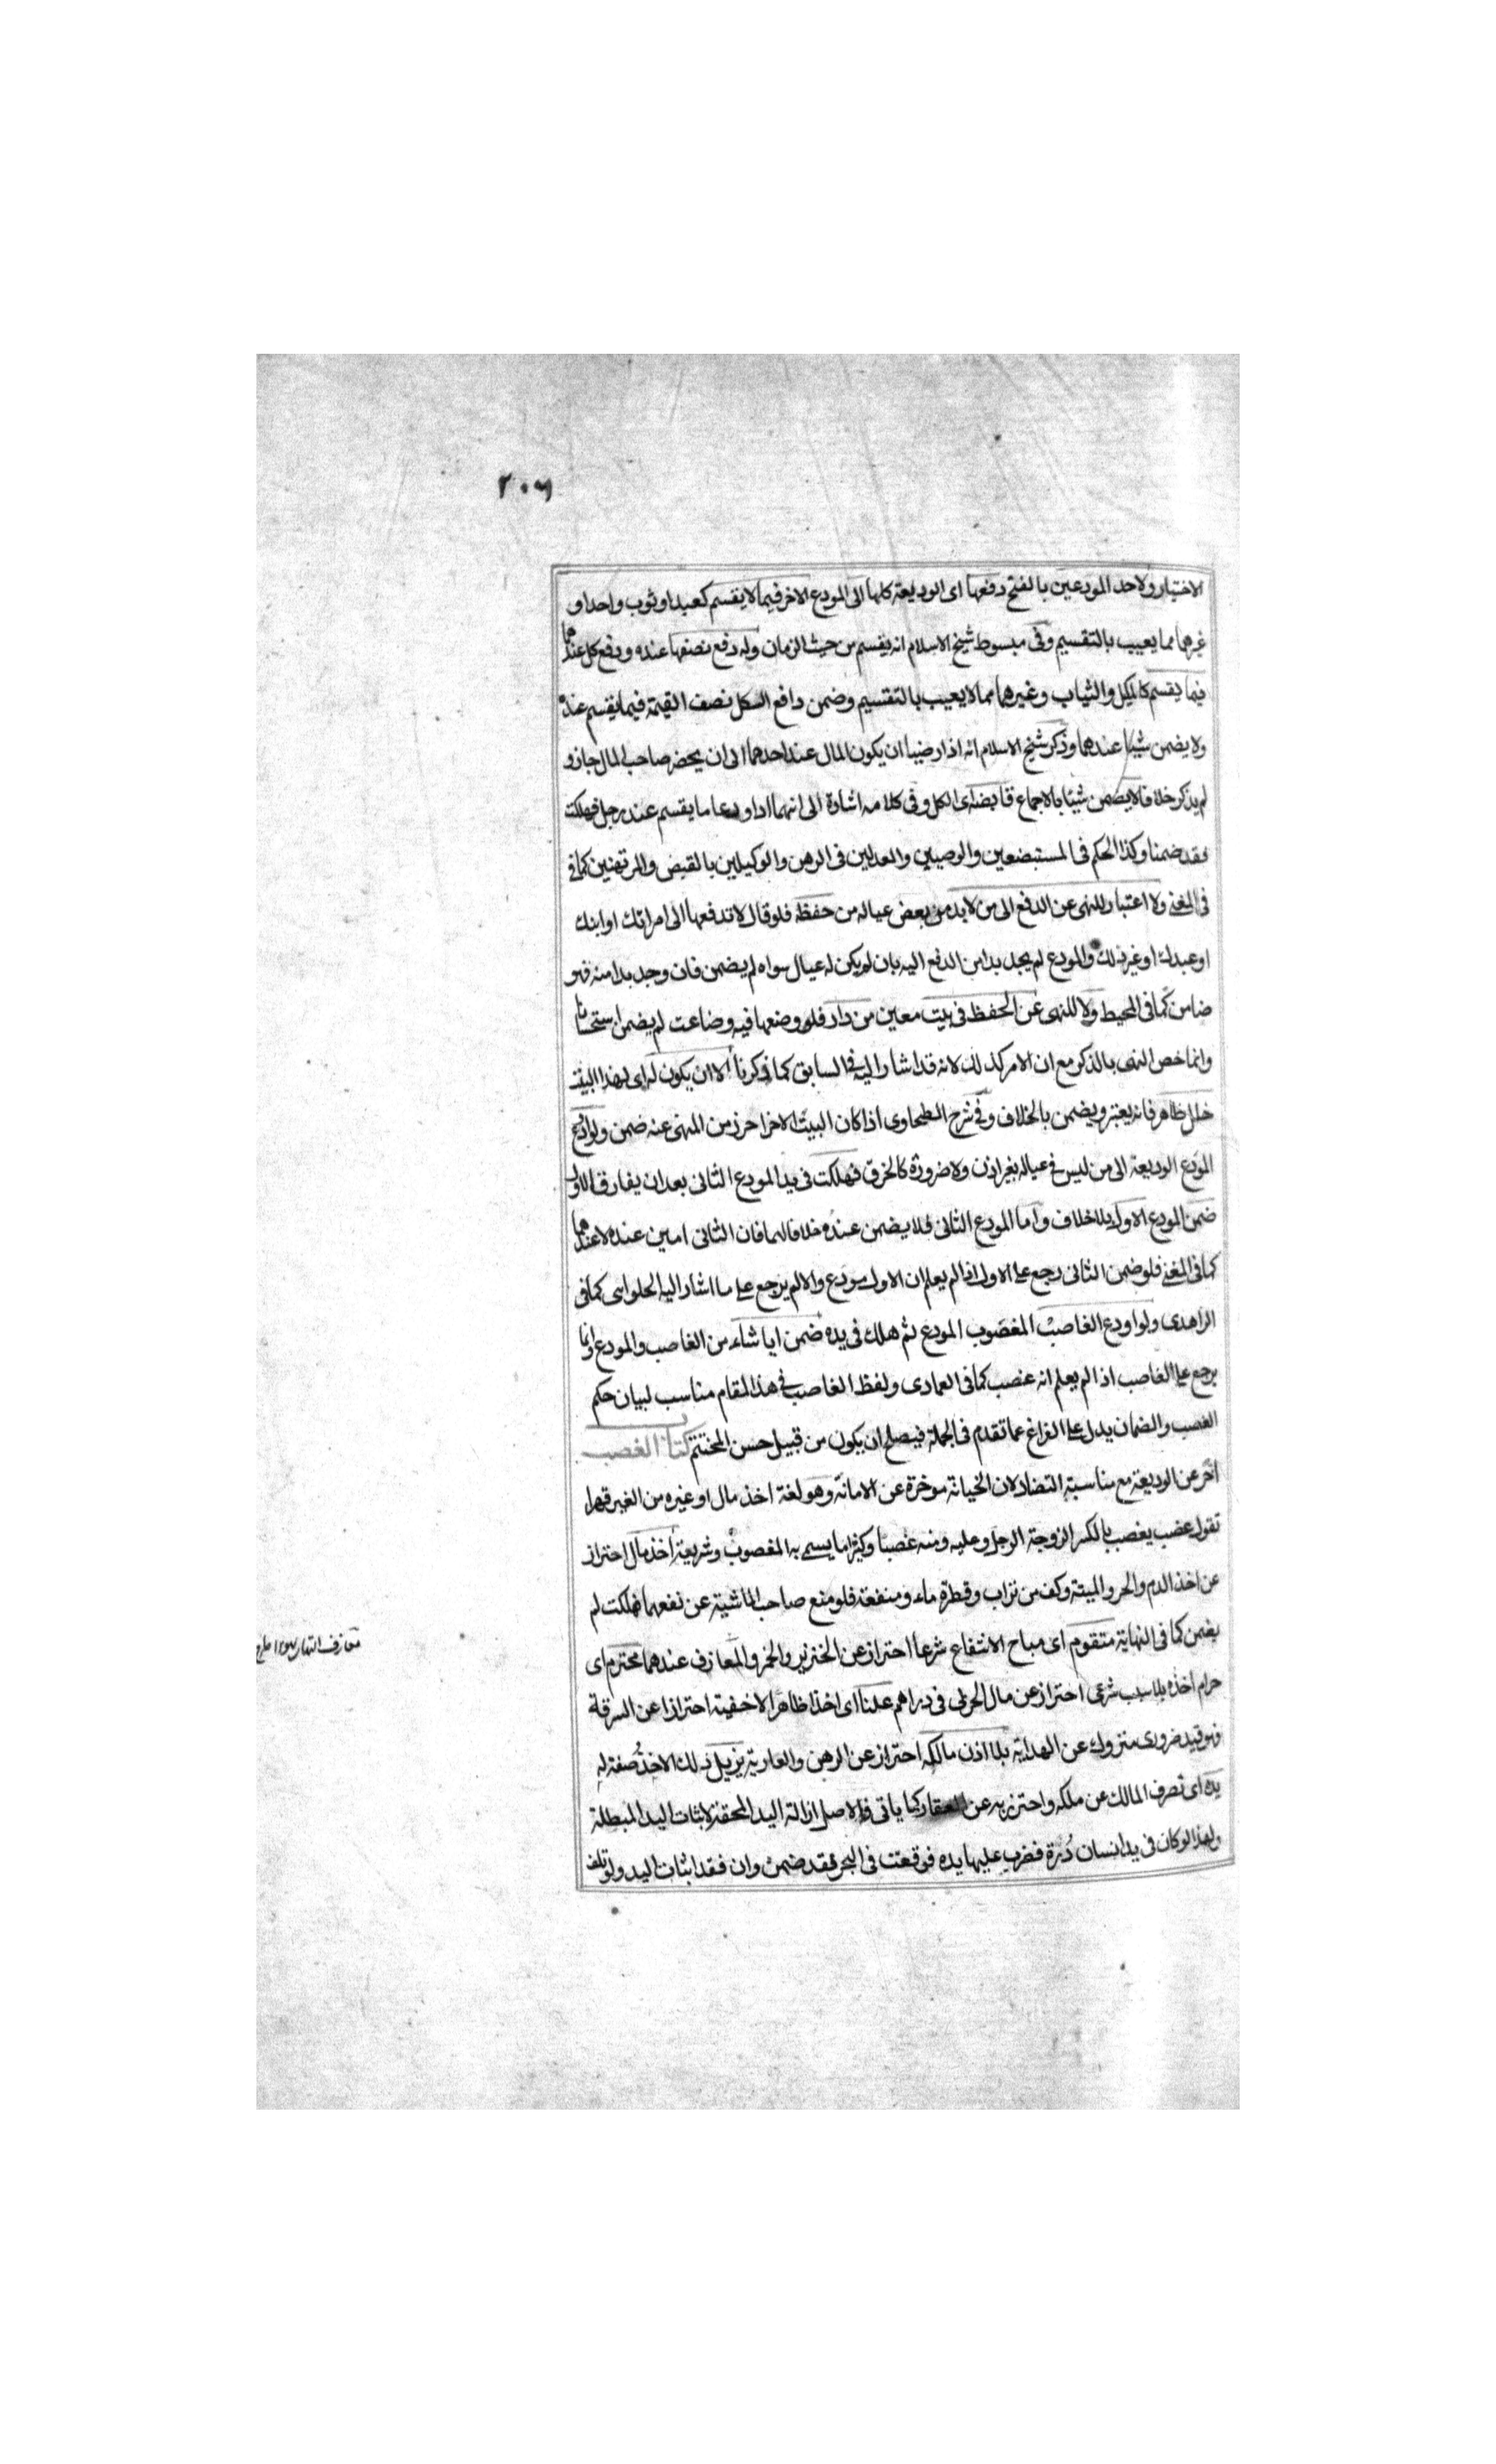 ٢٠٦
الاختيار ولاحد المودعين بالفتح دفعها اى الوديعة كلها الى المودع الاخر فيما لا يقسم كعبد او ثوب واحد او
غيرهما مما يعيب بالتقسيم وفى مبسوط شيخ الاسلام انه يقسم من حيث الزمان وله دفع نصفها عنده ودفع كل عندهما
فيما يقسم كالمكيل والثياب وغيرهما مما لا يعيب بالتقسيم وضمن دافع الكل نصف القيمة فيما يقسم عنده
ولا يضمن شيئا عندهما وذكر شيخ الاسلام انه اذا رضيا ان يكون المال عند احدهما الى ان يحضر صاحب المال جاز و
لم يذكر خلافا لا يضمن شيئا بالاجماع قابضه اى الكل وفى كلامه اشارة الى انهما اذا اودعا ما يقسم عند رجل فهلكت
فقد ضمنا وكذا الحكم فى المستبضعين والوصيين والعدلين فى الرهن والوكيلين بالقبض والمرتهنين كما فى
فى المغنى ولا اعتبار للنهى عن الدفع الى من لابد من بعض عياله من حفظه فلو قال لا تدفعها الى امراتك او ابنك
او عبدك او غير ذلك والمودع لم يجد بدا من الدفع اليه بان لم يكن له عيال سواه لم يضمن فان وجد بدا منه فهو
ضامن كما فى المحيط ولا للنهى عن الحفظ فى بيت معين من دار فلو وضعها فيه وضاعت لم يضمن استحسانا
وانما خص النهى بالذكر مع ان الامر كذلك لانه قد اشار اليه فى السابق كما ذكرنا الا ان يكون له اى لهذا البيت
خلل ظاهر فانه يعتبر ويضمن بالخلاف وفى شرح الطحاوى اذا كان البيت الاخر احرز من المنهى عنه ضمن ولو اودع
المودع الوديعة الى من ليس فى عياله بغير اذن ولا ضرورة كالخرق فهلكت فى يد المودع الثانى بعد ان يفارق الاول
ضمن المودع الاول بلا خلاف واما المودع الثانى فلا يضمن عنده خلافا لهما فان الثانى امين عنده لا عندهما
كما فى المغنى فلو ضمن الثانى رجع على الاول اذا لم يعلم ان الاول مودع والا لم يرجع على ما اشار اليه الحلوانى كما فى
الزاهدى ولو اودع الغاصب المغصوب المودع ثم هلك فى يده ضمن ايا شاء من الغاصب والمودع وانما
يرجع على الغاصب اذا لم يعلم انه غصب كما فى العمادى ولفظ الغاصب فى هذا المقام مناسب لبيان حكم
الغصب والضمان يدل على الفراغ عما تقدم فى الجملة فيصلح ان يكون من قبيل حسن المختتم كتاب الغصب
اخر عن الوديعة مع مناسبة التضاد لان الخيانة موخرة عن الامانة وهو لغة اخذ مال او غيره من الغير قهرا
تقول غصب يغصب بالكسر الزوجة الرجل وعليه ومنه غصبا وكثيرا ما يسمى به المغصوب وشريعة اخذ مال احتراز
عن اخذ الدم والحر والميتة وكف من تراب وقطرة ماء ومنفعة فلو منع صاحب الماشية عن نفعها فهلكت لم
يضمن كما فى النهاية متقوم اى مباح الانتفاع شرعا احتراز عن الخنزير والخمر والمعازف عندهما محترم اى
حرام اخذه بلا سبب شرعى احتراز عن مال الحربى فى دراهم علنا اى اخذا ظاهرا لا خفية احترازا عن السرقة
فهو قيد ضرورى متروك عن الهداية بلا اذن مالكه احتراز عن الرهن والعارية يزيل ذلك الاخذ صفة له
يده اى تصرف المالك عن ملكه واحترز به عن العقار كما ياتى فالاصل ازالة اليد المحقة لا اثبات اليد المبطلة
ولهذا لو كان فى يد انسان درة فضرب عليها يده فوقعت فى البحر فقد ضمن وان فقد اثبات اليد ولو تلف